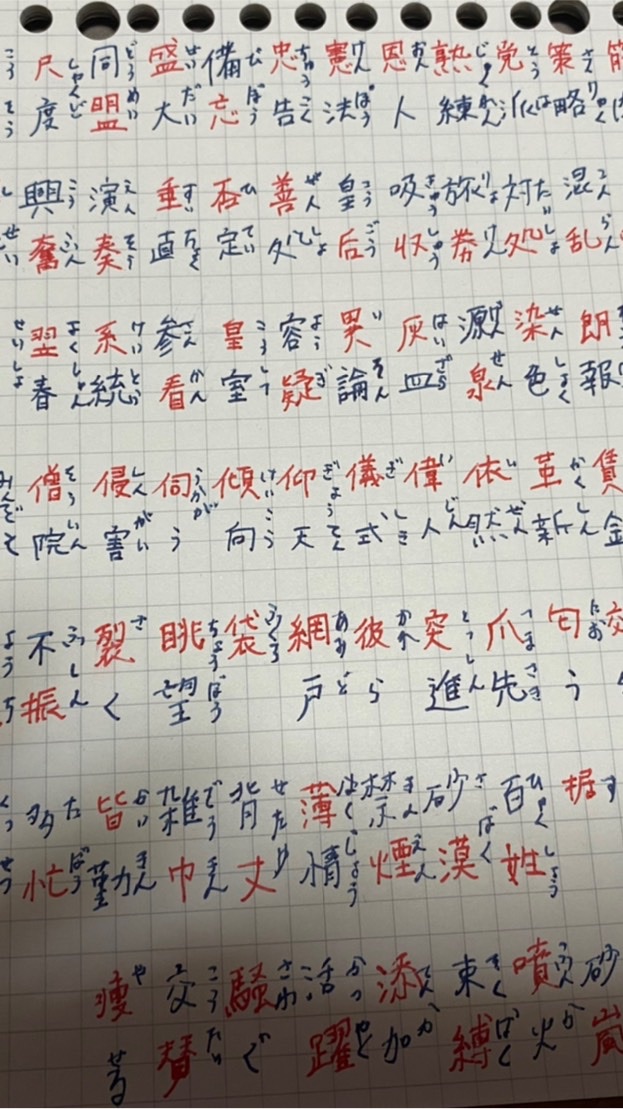 策略 さくりゃく
党派 とうは
熟練 じゅくれん
恩人 おん
憲法 けんぽう
忠告 ちゅうこく
備忘 びぼう
盛大 せいだい
同盟 どうめい
尺度 しゃくど
混乱 こんらん
対処 たいしょ
旅券 りょけん
吸収 きゅうしゅう
皇后 こうごう
善処 ぜんしょ
否定 ひてい
垂直 すいちょく
演奏 えんそう
興奮 こうふん
朗報
染色 せんしょく
源泉 げんせん
灰皿 はいざら
異論 いろん
容疑 ようぎ
皇室 こうしつ
参看 さんかん
系統 けいとう
翌春 よくしゅん
賃金
革新 かくしん
依然 いぜん
偉人 いじん
儀式 ぎしき
仰天 ぎょうてん
傾向 けいこう
伺う うかが
侵害 しんがい
僧院 そういん
匂う にお
爪先 つまさき
突進 とっしん
彼ら かれ
網戸 あみど
袋 ふくろ
眺望 ちょうぼう
裂く さ
不振 ふしん
据 す
百姓 ひゃくしょう
砂漠 さばく
禁煙 きんえん
薄情 はくじょう
背丈 せたけ
雑巾 ぞうきん
皆勤 かいきん
多忙 たぼう
砂嵐
噴火 ふんか
束縛 そくばく
添加 てんか
活躍 かつやく
騒ぐ さわ
交替 こうたい
痩せる や